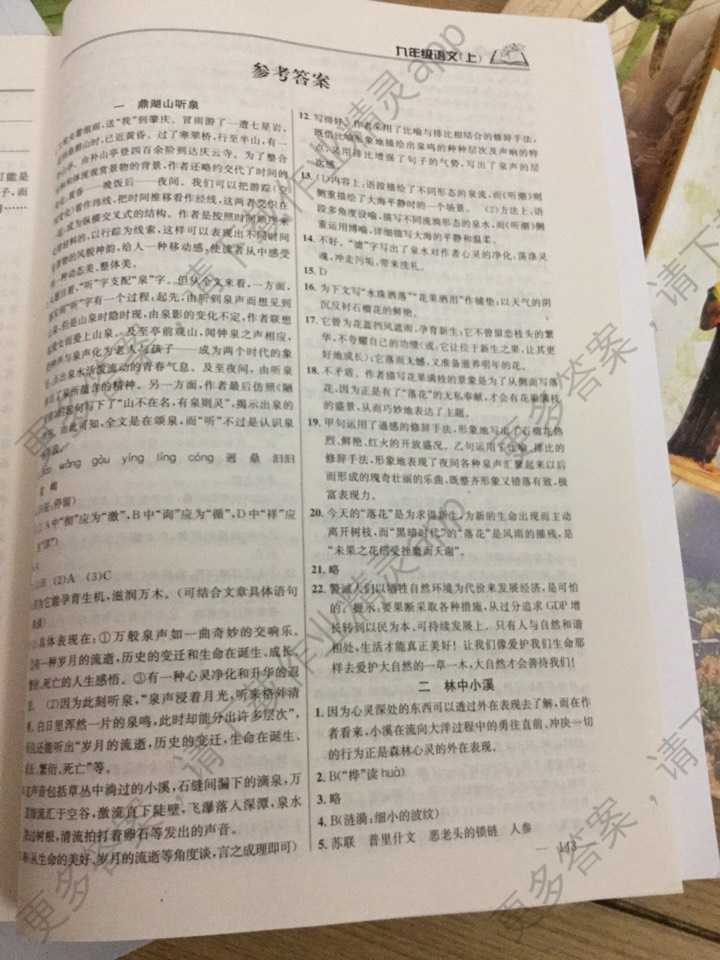 九年级语文(上)
参考答案
一 鼎湖山听泉
烟雨，送“我”到肇庆。冒雨游了一遭七星岩、
鼎湖山时，已近黄昏。过了寒翠桥，行至半山，有一
由补山亭登四百余阶到达庆云寺。为了整合
观赏景物的背景，作者还略约交代了时间的
黄昏——晚饭后——夜间。我们可以把游踪(空
变化)看作纬线，把时间推移看作经线，这两者交织在
成为纵横交叉式的结构。作者是按照时间顺序来
材料的，以行踪为线索，这样可以表现出不同时间
景物的风貌神韵，给人一种移动感，使读者从中感受
一种动态美、整体美。
“听”字支配“泉”字。但从全文来看，一方面，
“听”字有一个过程：起先，由听到泉声而想见到
但是山泉时隐时现，由泉影的变化不定，作者联想
爱上山泉。及至亭前观山，闻钟泉之声相应，
与泉声化为老人与孩子——成为两个时代的象
点出泉水活泼流动的青春气息。及至夜间，由听泉
了泉所蕴含的精神。另一方面，作者最后仿照《陋
写下了“山不在名，有泉则灵”，揭示出泉的
由此可知，全文是在颂泉，而“听”不过是认识泉
wǎng gòu yíng líng cóng 迥 鼎 汩汩
(驻：停留)
A中“彻”应为“澈”，B中“询”应为“循”，D中“祥”应
B (2)A (3)C
为它能孕育生机，滋润万木。(可结合文章具体语句
具体表现在：①万般泉声如一曲奇妙的交响乐。
有一种岁月的流逝，历史的变迁和生命在诞生、成长、
死亡的人生感悟。③有一种心灵净化和升华的追
(2)因为此刻听泉，“泉声浸着月光，听来格外清
白日里浑然一片的泉鸣，此时却能分出许多层次”，
还能听出“岁月的流逝，历史的变迁，生命在诞生、
长、繁衍、死亡”等。
声音包括草丛中淌过的小溪，石缝间漏下的滴泉，万
流汇于空谷，激流直下陡壁，飞瀑落人深潭，泉水
过树根，清流拍打着卵石等发出的声音。
从生命的美好、岁月的流逝等角度谈，言之成理即可)
12. 写得好。作者采用了比喻与排比相结合的修辞手法，
既借比喻形象地描绘出泉鸣的种种层次及声响的特
点，又用排比增强了句子的气势，写出了泉声的层
次感。
13. (1)内容上：语段描绘了不同形态的泉流，而《听潮》则
侧重描绘了大海平静时的一个侧面。 (2)方法上：语
段多角度设喻，描写不同流淌形态的泉水，而《听潮》侧
重运用博喻，详细描写大海的平静和温柔。
14. 不好。“滤”字写出了泉水对作者心灵的净化，荡涤灵
魂，冲走污垢，带来洗礼。
15. D
16. 为下文写“水珠洒落”“花果洒泪”作铺垫；以天气的阴
沉反衬石榴花的鲜艳。
17. 它曾为花蕾挡风遮雨，孕育新生；它不曾留恋枝头的繁
华，不夸耀自己的功绩(或：它让位于新生之果，让其更
好地成长)；它落而无憾，又准备滋养明年的花。
18. 不矛盾。作者描写花果满枝的景象是为了从侧面写落
花，因为正是有了“落花”的无私奉献，才会有花果满枝
的盛景，从而巧妙地表达了主题。
19. 甲句运用了通感的修辞手法，形象地写出了石榴花热
烈、鲜艳、红火的开放盛况。乙句运用了比喻、排比的
修辞手法，形象地表现了夜间各种泉声汇聚起来以后
而形成的瑰奇壮丽的乐曲，既整齐形象又错落有致，极
富表现力。
20. 今天的“落花”是为求得新生，为新的生命出现而主动
离开树枝，而“黑暗时代”的“落花”是风雨的摧残，是
“未果之花倍受挫磨而夭谢”。
21. 略
22. 警诫人们以牺牲自然环境为代价来发展经济，是可怕
的。提示：要果断采取各种措施，从过分追求GDP增
长转到以民为本、可持续发展上。只有人与自然和谐
相处，生活才能真正美好！让我们像爱护我们生命那
样去爱护大自然的一草一木，大自然才会善待我们！
二 林中小溪
1. 因为心灵深处的东西可以透过外在表现去了解，而在作
者看来，小溪在流向大洋过程中的勇往直前、冲决一切
的行为正是森林心灵的外在表现。
2. B(“桦”读huà)
3. 略
4. B(涟漪：细小的波纹)
5. 苏联 普里什文 恶老头的锁链 人参
113
更多答案，请下载作业精灵app
更多答案，请下